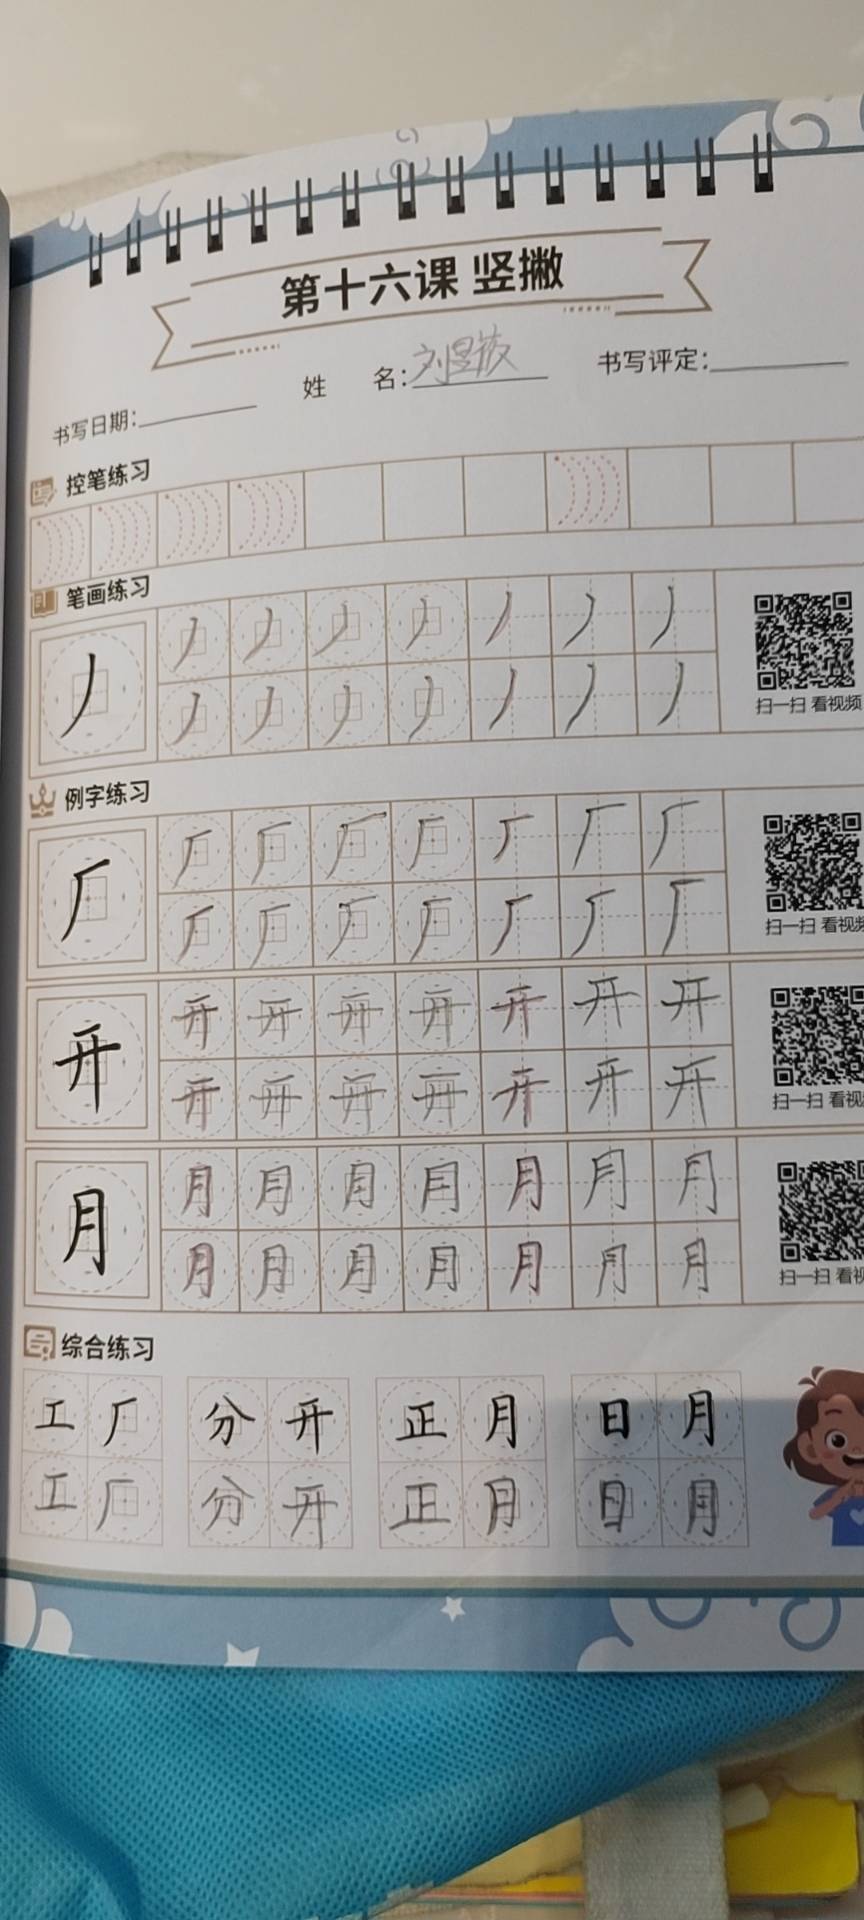 第十六课 竖撇
书写日期： 姓 名：刘 书写评定：
控笔练习
笔画练习
丿 丿 丿 丿 丿 丿 丿 丿
丿 丿 丿 丿 丿 丿 丿
扫一扫 看视频
例字练习
厂 厂 厂 厂 厂 厂 厂 厂
厂 厂 厂 厂 厂 厂 厂
扫一扫 看视频
开 开 开 开 开 开 开 开
开 开 开 开 开 开 开
扫一扫 看视
月 月 月 月 月 月 月 月
月 月 月 月 月 月 月
扫一扫 看视
综合练习
工 厂 分 开 正 月 日 月
工 厂 分 开 正 月 日 月